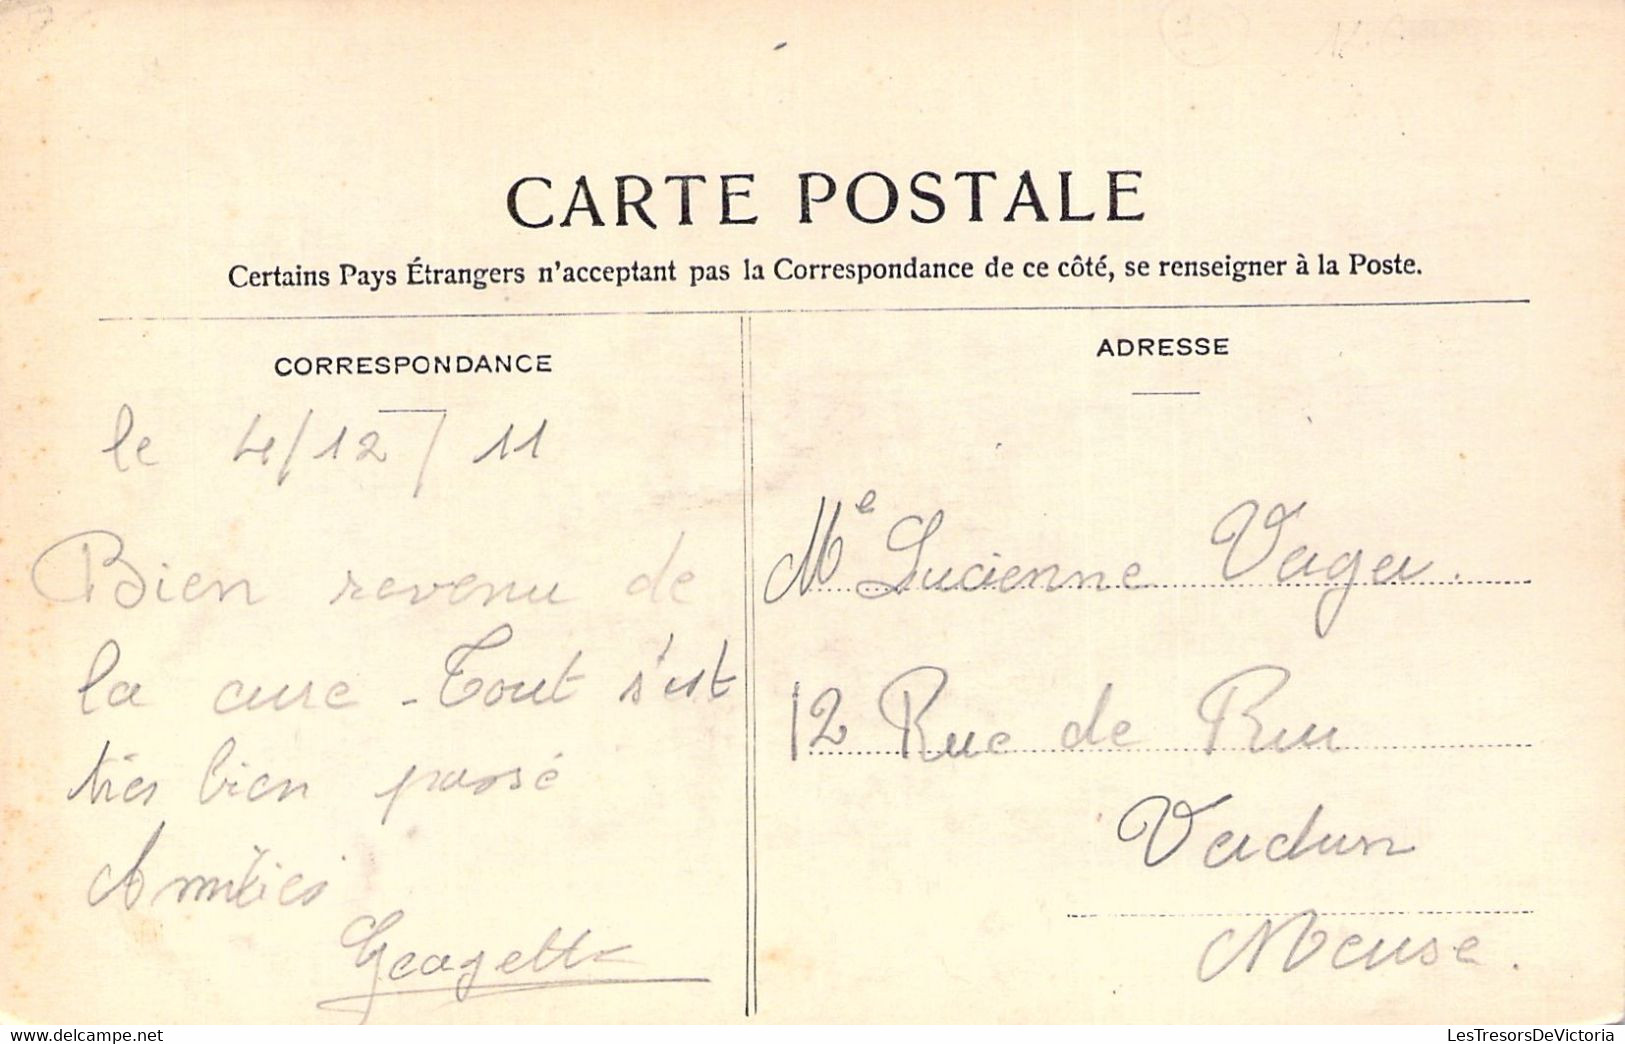 CARTE POSTALE
Certains Pays Étrangers n'acceptant pas la Correspondance de ce côté, se renseigner à la Poste.
CORRESPONDANCE
le 4/12/11
Bien revenu de
la cure - Tout s'est
très bien passé
Amitiés
Georgette
ADRESSE
Me Lucienne
12 Rue de Rue
Verdun
Meuse.
LesTresorsDeVictoria